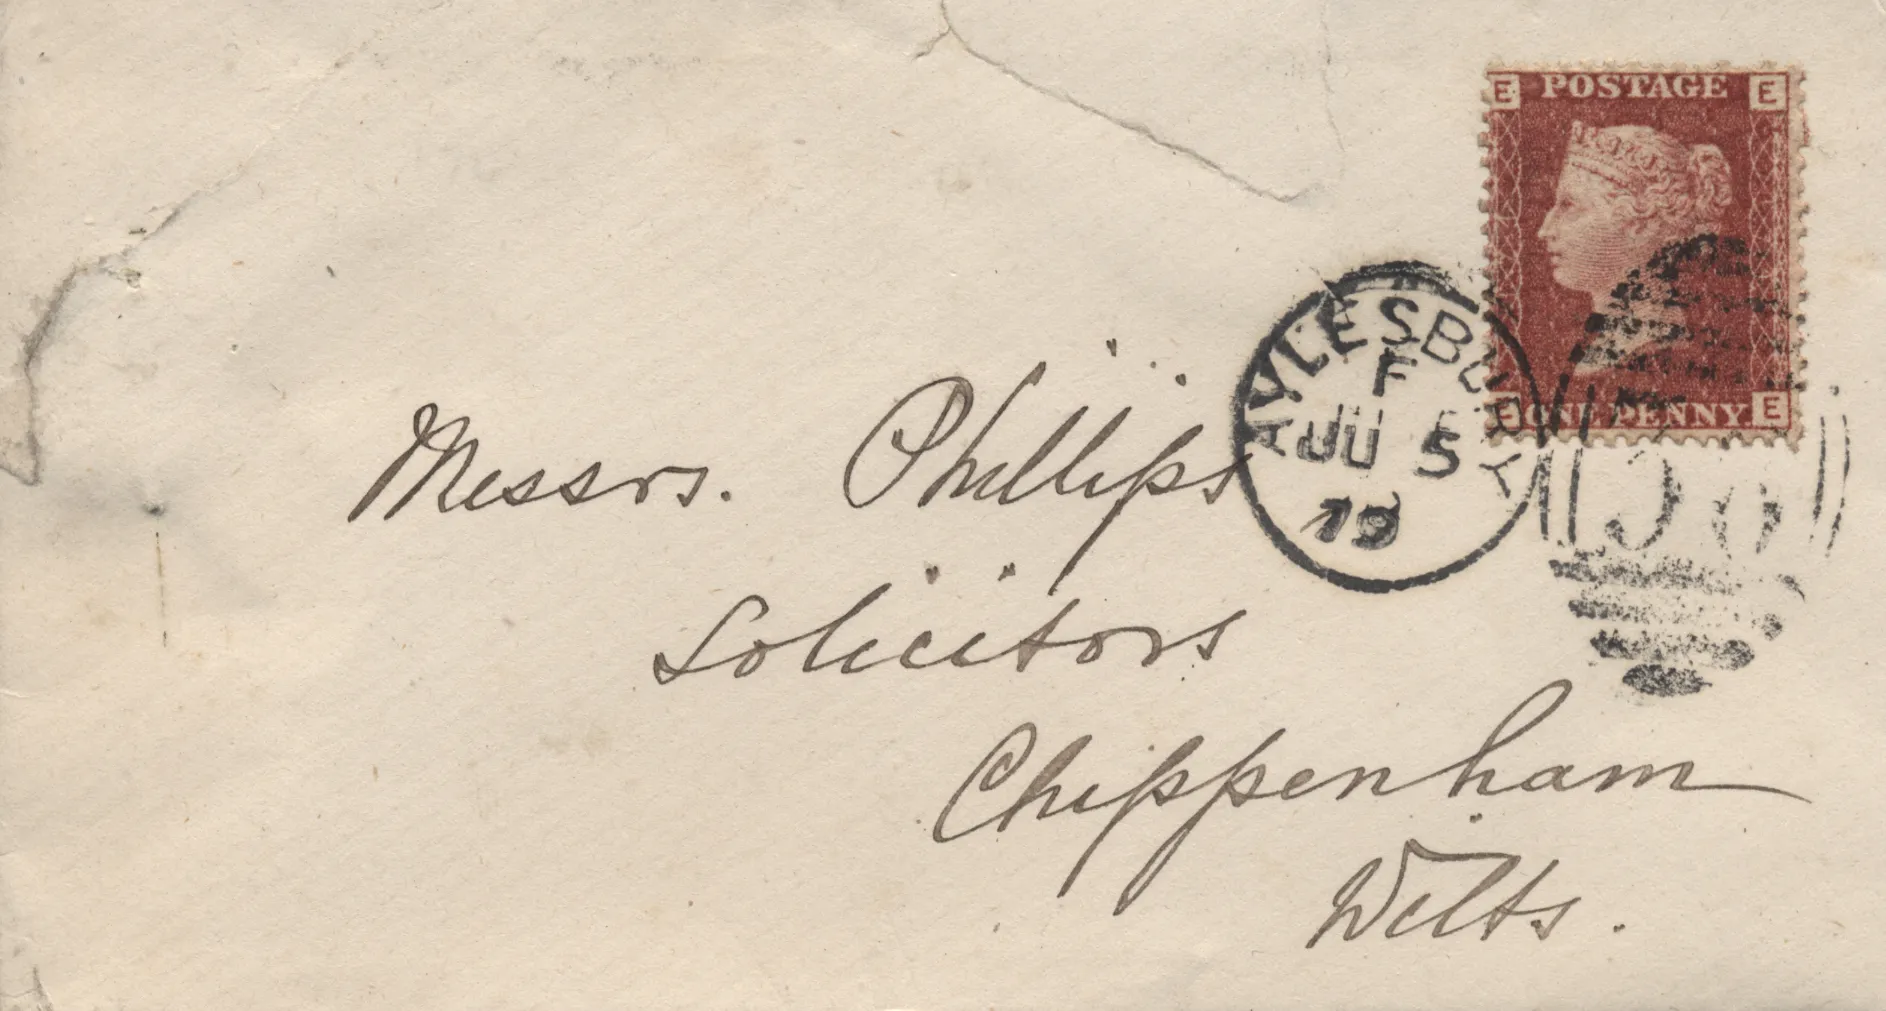 E POSTAGE E
AYLESBURY
F
JU 5
79
E ONE PENNY. E
Messrs. Phillips
Solicitors
Chippenham
Wilts.